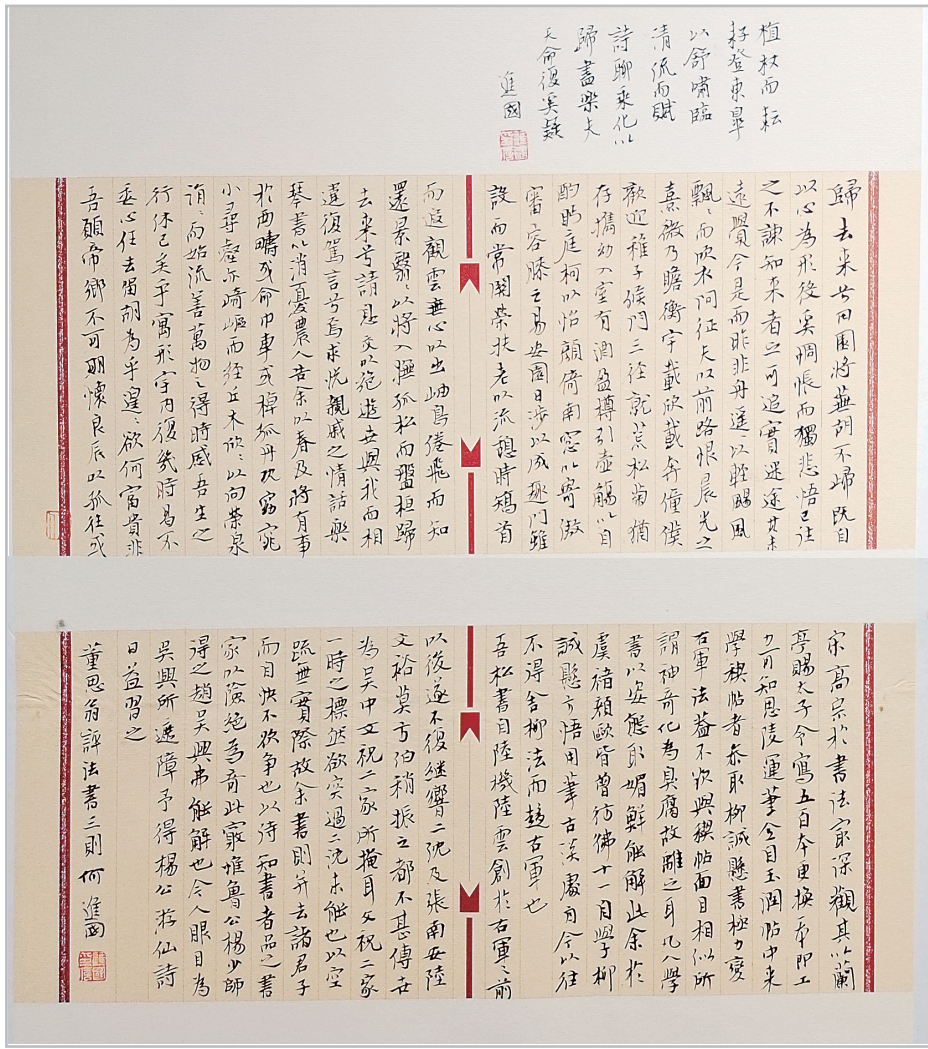 歸去来兮田園將蕪胡不歸既自
以心為形役奚惆悵而獨悲悟已往
之不諫知来者之可追實迷途其未
遠覺今是而昨非舟遥〻以輕颺風
飄〻而吹衣問征夫以前路恨晨光之
熹微乃瞻衡宇載欣載奔僮僕
歡迎稚子候門三徑就荒松菊猶
存攜幼入室有酒盈樽引壺觴以自
酌眄庭柯以怡顔倚南窓以寄傲
審容膝之易安園日涉以成趣門雖
設而常関策扶老以流憩時矯首
而遐觀雲無心以出岫鳥倦飛而知
還景翳〻以將入撫孤松而盤桓歸
去来兮請息交以絶遊世與我而相
違復駕言兮焉求悦親戚之情話樂
琴書以消憂農人告余以春及將有事
於西疇或命巾車或棹孤舟既窈窕
以尋壑亦崎嶇而經丘木欣〻以向榮泉
涓〻而始流善萬物之得時感吾生之
行休已矣乎寓形宇内復幾時曷不
委心任去留胡為乎遑〻欲何富貴非
吾願帝鄉不可期懷良辰以孤往或
植杖而耘
耔登東皋
以舒嘯臨
清流而賦
詩聊乘化以
歸盡樂夫
天命復奚疑
進國
宋高宗於書法最深觀其以蘭
亭賜太子令寫五百本更換本即工
力可知思陵運筆全自玉潤帖中来
學禊帖者參取柳誠懸書極力變
右軍法盖不欲與禊帖面目相似所
謂神奇化為臭腐故離之耳凡人學
書以姿態取媚鮮能解此余於
虞褚顔歐皆曾彷彿十一自學柳
誠懸方悟用筆古淡處自今以往
不得舍柳法而趨右軍也
吾松書自陸機陸雲創於右軍之前
以後遂不復継響二沈及張南安陸
文裕莫方伯稍振之都不甚傳世
為吴中文祝二家所掩耳文祝二家
一時之標然欲突過二沈未能也以空
疏無實際故余書則并去諸君子
而自快不欲争也以待知書者品之書
家以險絶為奇此竅惟魯公楊少師
得之趙吴興弗能解也今人眼目為
吴興所遮障予得楊公游仙詩
日益習之
董思翁評法書三則 何進國